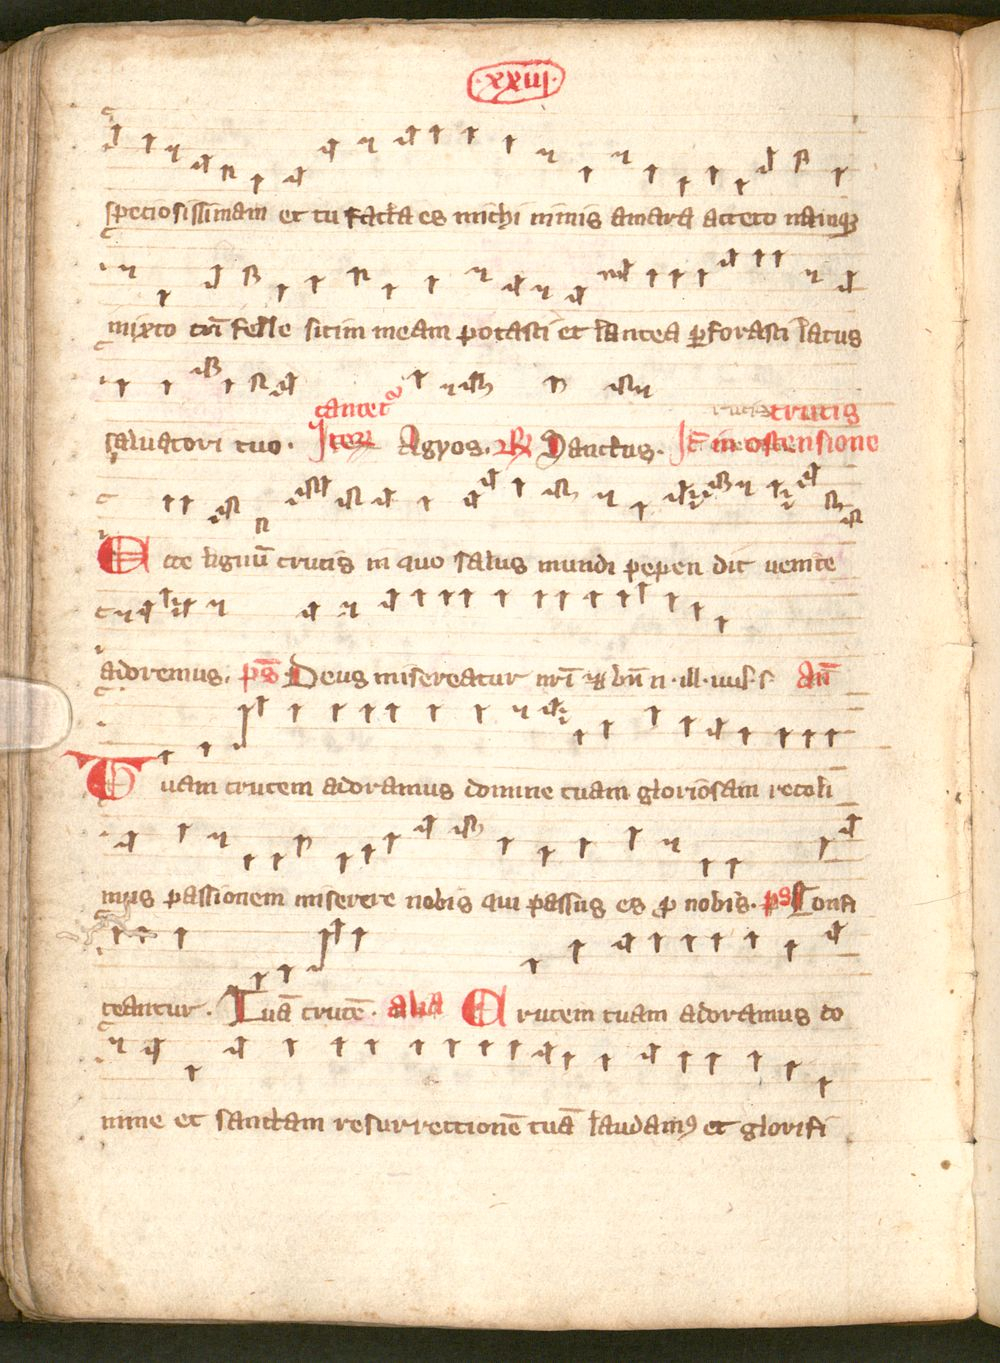 ·xxiij·
speciosissimam et tu facta es michi nimis amara aceto namq3
mixto cū felle sitim meam potasti et lancea ꝑforasti latus
cantet᷎
crucis
saluatori tuo. Iteꝝ Agyos. ℟ Sanctus. It̄ in ostensione
Ecce lignū crucis in quo salus mundi pepen dit venite
adoremus. pš Deus misereatur nr̄i ⁊ bn̄
an̄
Tuam crucem adoramus domine tuam gloriosam recoli
mus passionem miserere nobis qui passus es ꝓ nobis. ps Confi
teantur. Tuā crucē. alia Crucem tuam adoramus do
mine et sanctam resurrectionē tuā laudamꝰ et glorifi